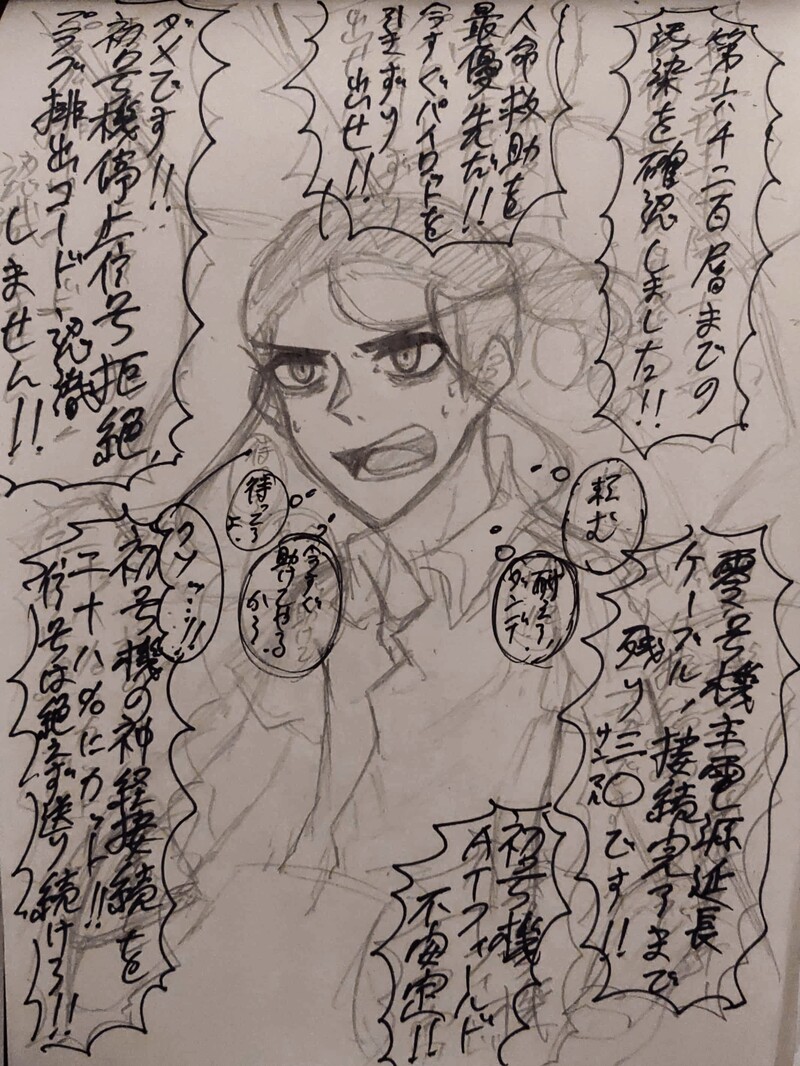 第六千二百層までの
汚染を確認しました!!
人命救助を
最優先だ!!
今すぐパイロットを
引きずり
出せ!!
ダメです!!
初号機停止信号拒絶、
プラグ排出コード、認識
しません!!
頼む
耐えろ、
待ってろ
よ、
今すぐ
助けてやる
から、
クソッ…!!
零号機主電源延長
ケーブル、接続完了まで
残り三〇です!!
サンマル
初号機の神経接続を
二十八%にカット!!
信号は絶えず送り続けろ!!
初号機
ATフィールド
不安定!!